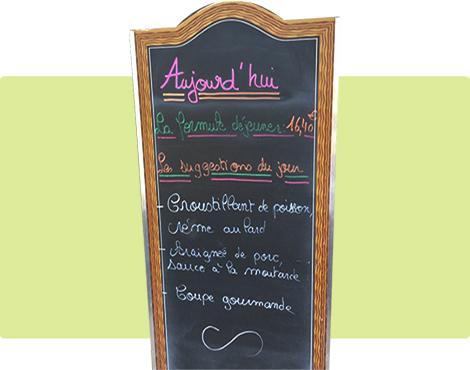 Aujourd'hui
La formule déjeuner: 16,40€
Les suggestions du jour
- Croustillant de poisson,
crème au lard
- Araignée de porc,
sauce à la moutarde
- Coupe gourmande